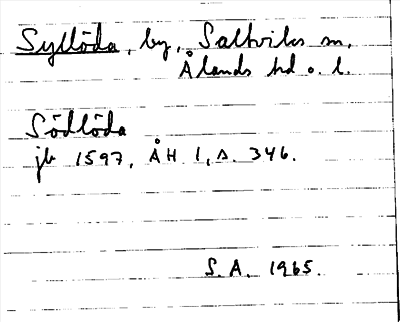 Syllöda, by, Saltviks sn,
Ålands hd o. l.
Södlöda
jb 1597, ÅH 1, s. 346.
S.A. 1965.